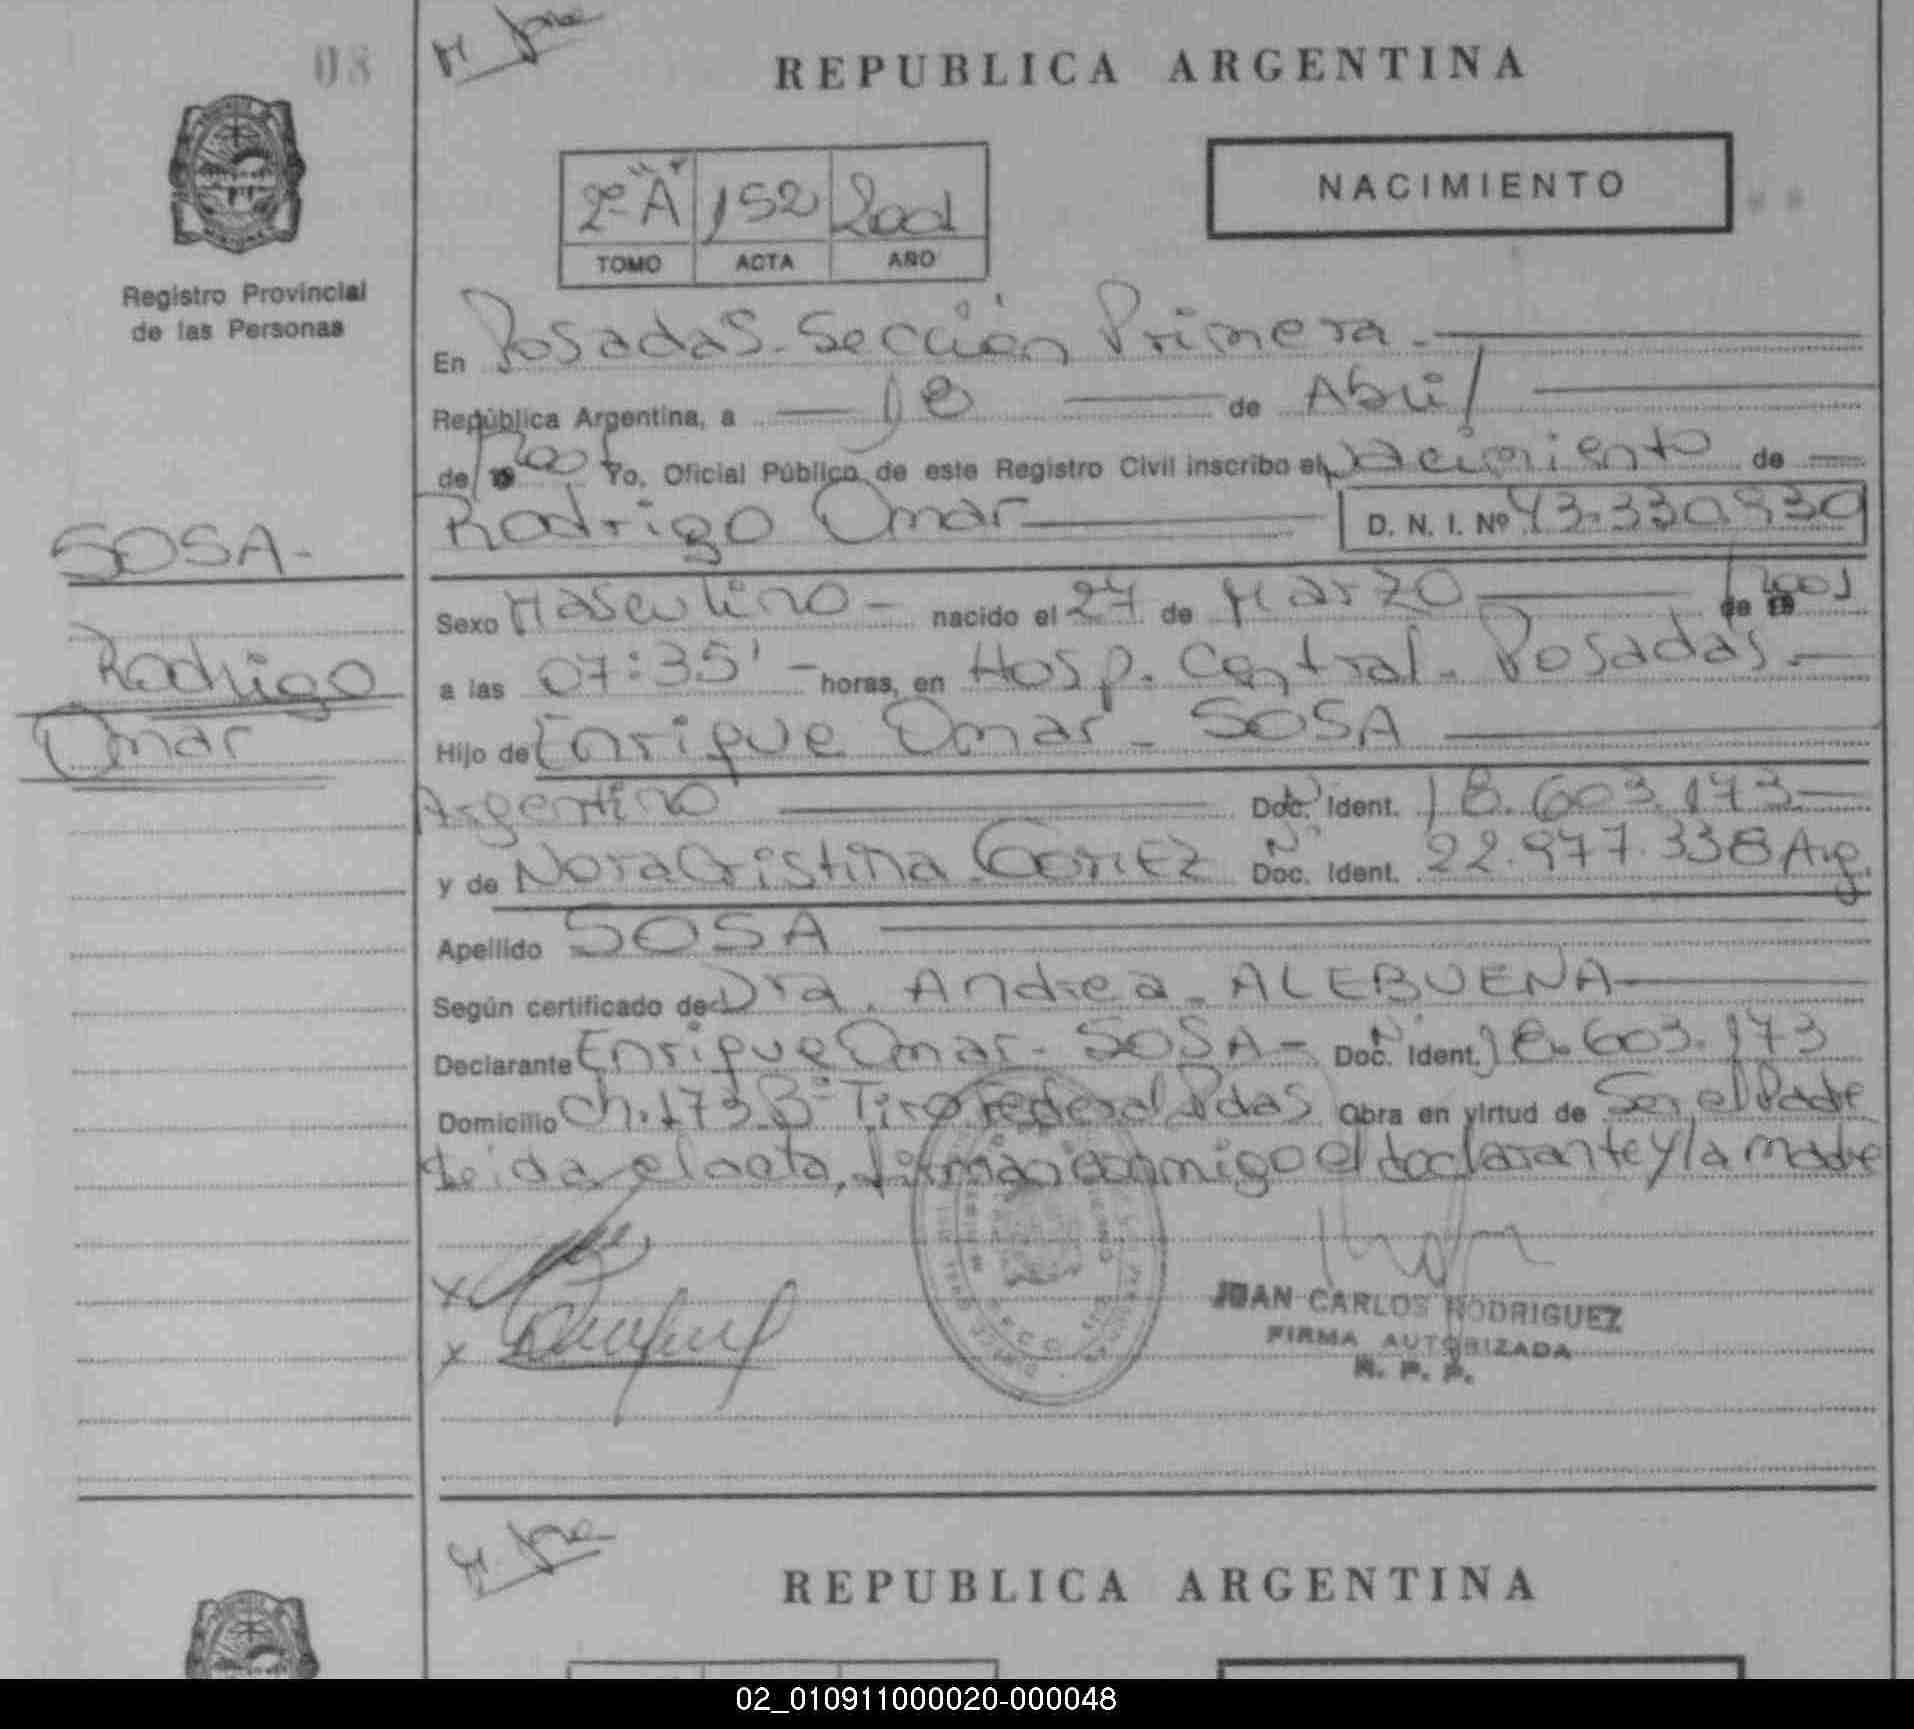 08
REPUBLICA ARGENTINA
NACIMIENTO
2º "A" 152 2001
TOMO ACTA AÑO
Registro Provincial
de las Personas
En Posadas - Sección Primera.-
República Argentina, a 18 de Abril
de 2001 Yo, Oficial Público de este Registro Civil inscribo el Nacimiento de
Rodrigo Omar D. N. I. Nº 43.330.930
SOSA-
Rodrigo
Omar
Sexo Masculino - nacido el 27 de Marzo de 2001
a las 07:35' - horas, en Hosp. Central - Posadas.-
Hijo de Enrique Omar - SOSA
Argentino Doc. Ident. 18.603.173-
y de Nora Cristina GOMEZ Doc. Ident. 22.977.338 Arg.
Apellido SOSA
Según certificado de Dra. Andrea - ALEBUENA
Declarante Enrique Omar - SOSA - Doc. Ident. 18.603.173
Domicilio Ch. 173 Bº Tiro Federal Pdas Obra en virtud de Ser el Padre
Leida el acta, firman conmigo el declarante y la madre
x
x
JUAN CARLOS RODRIGUEZ
FIRMA AUTORIZADA
R. P. P.
REPUBLICA ARGENTINA
02_010911000020-000048